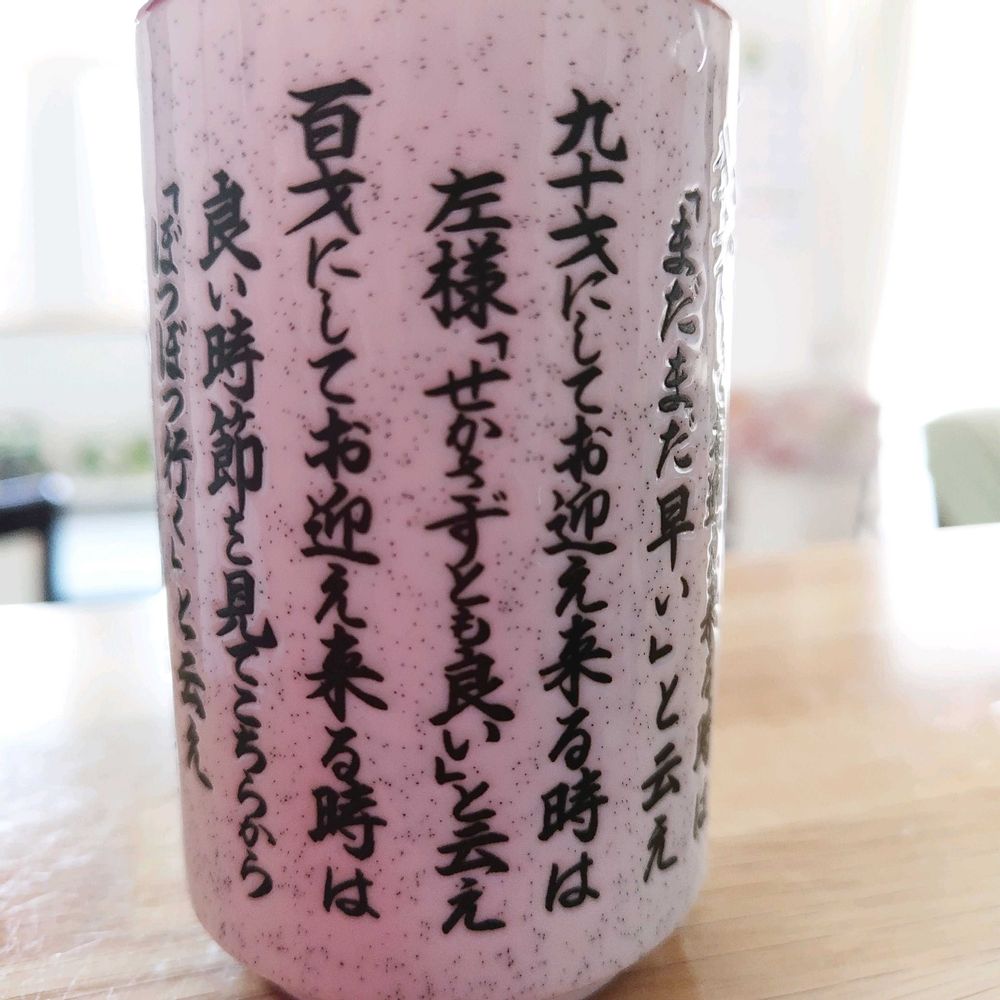 「まだまだ早い」と云え
九十才にしてお迎え来る時は
左様「せかさずとも良い」と云え
百才にしてお迎え来る時は
良い時節を見てこちらから
「ぼつぼつ行く」と云え